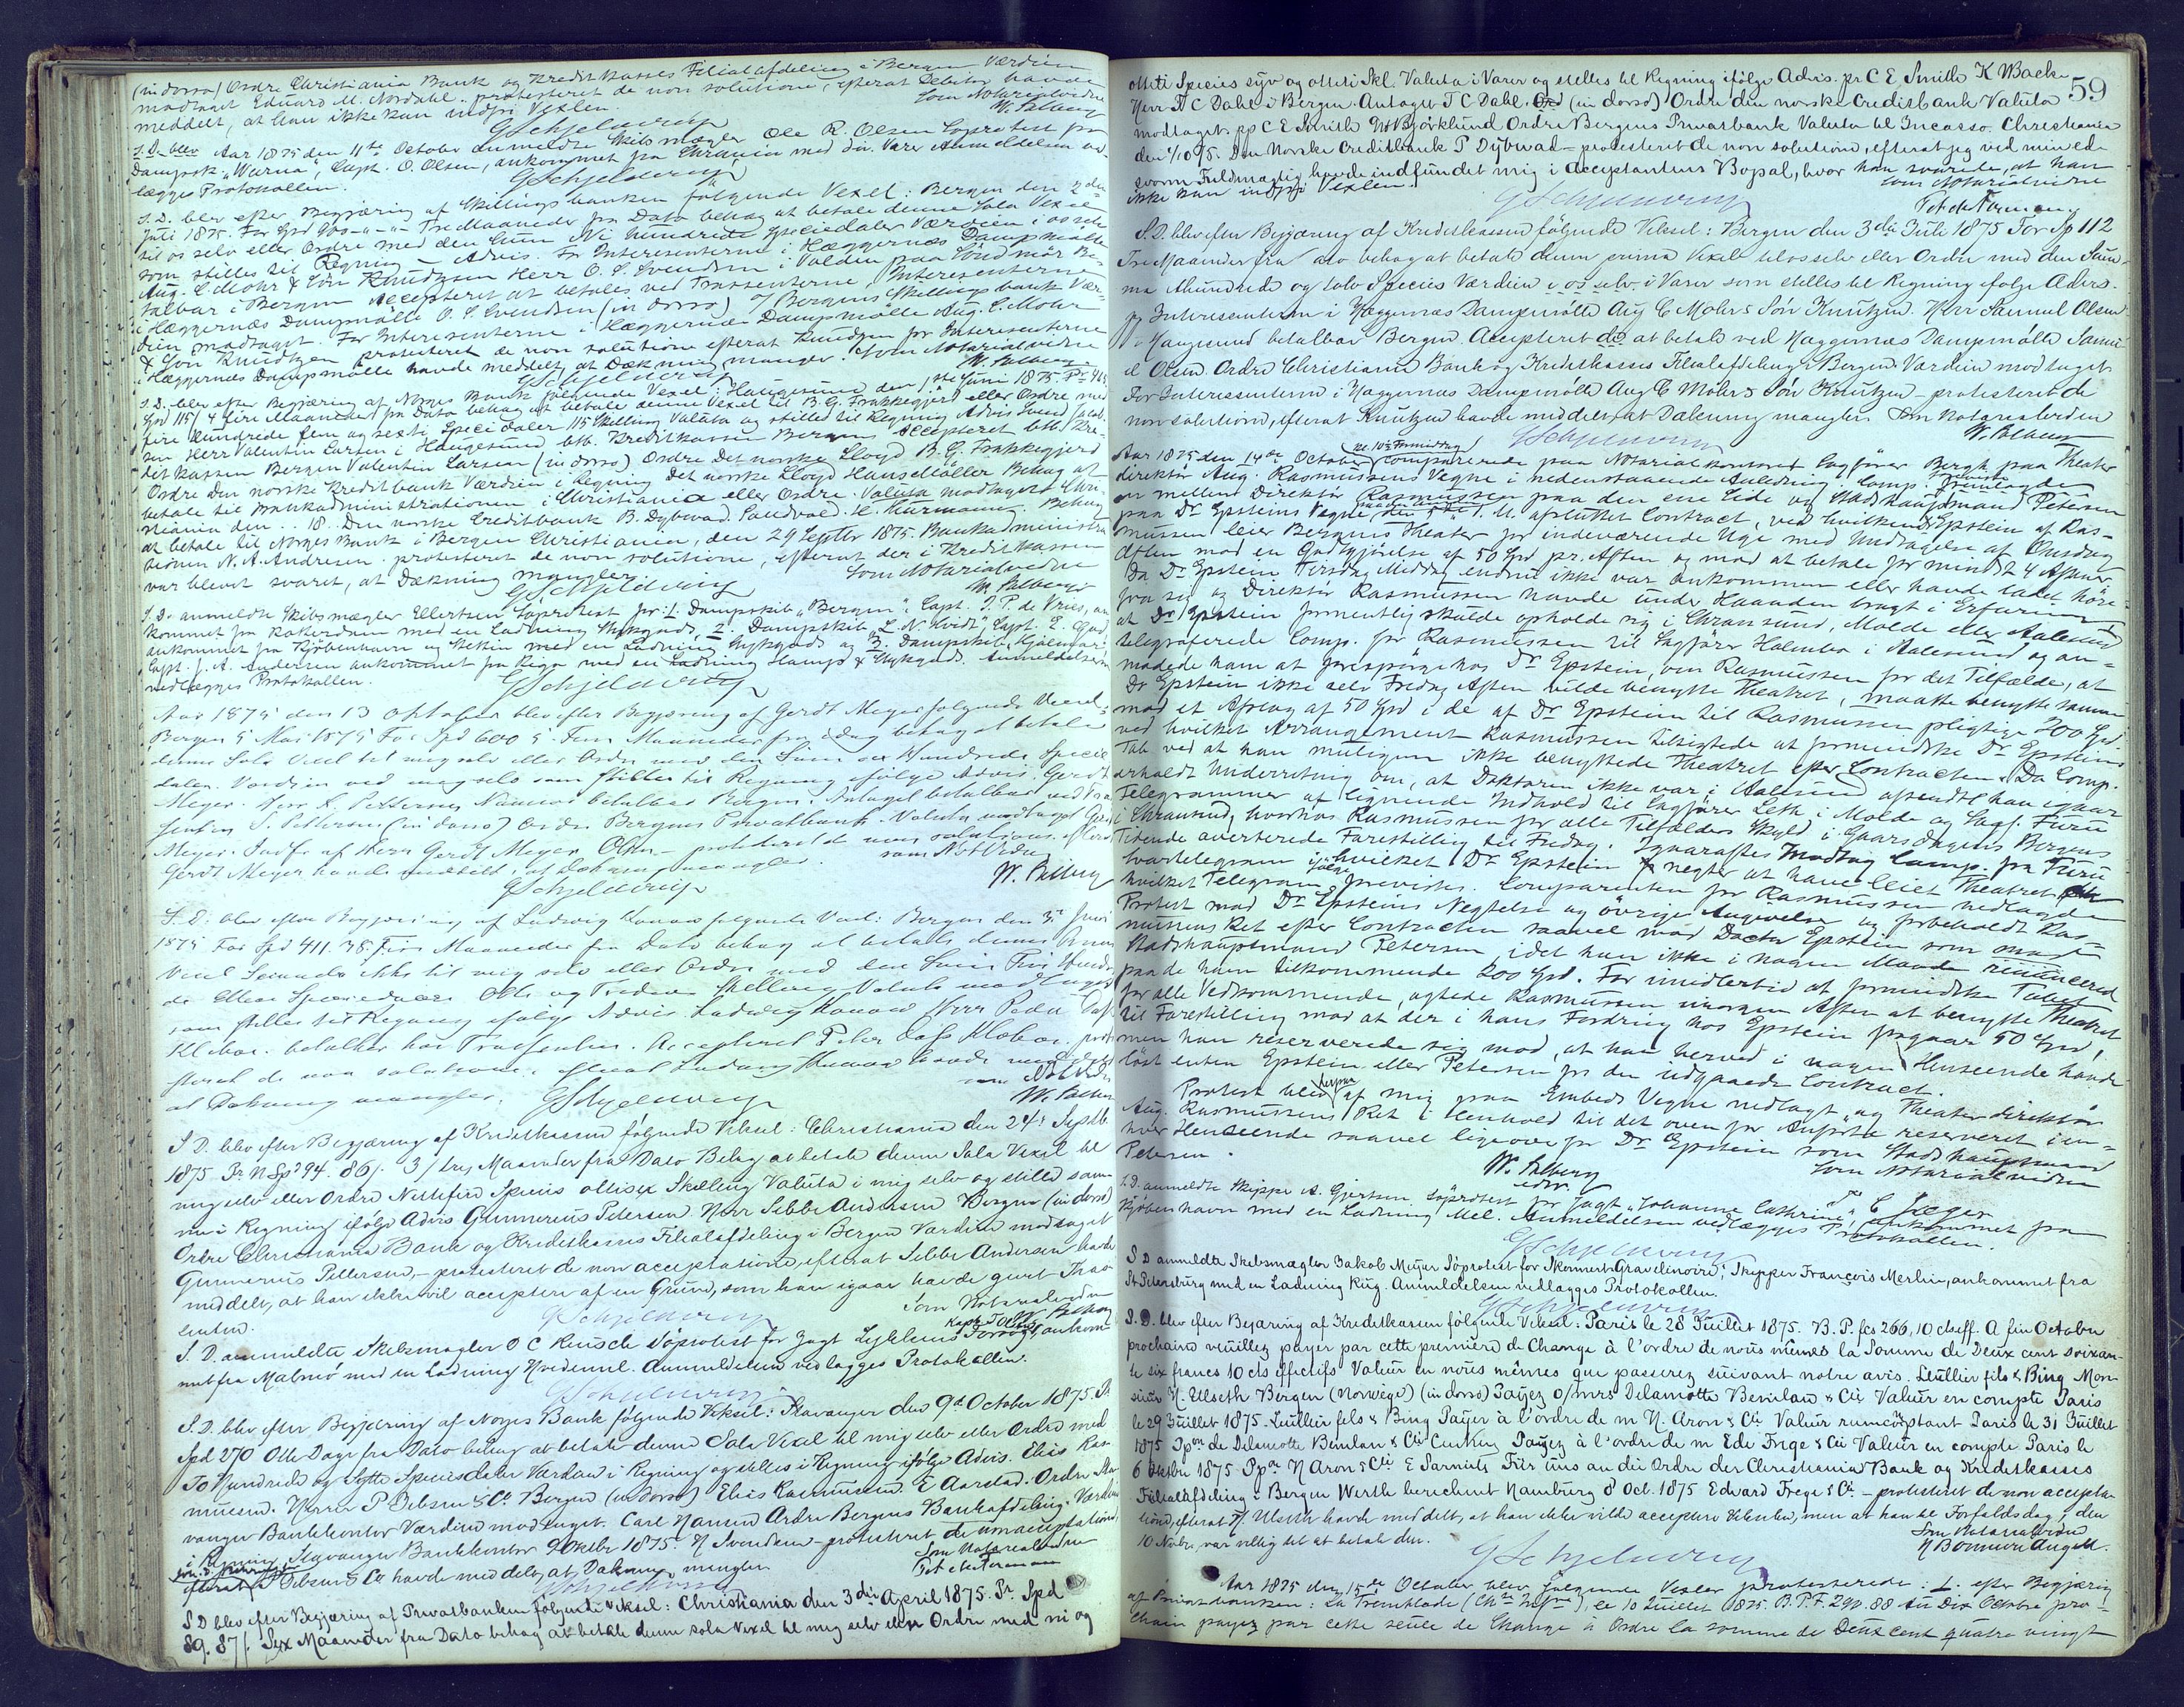 (in dorso) Ordre Christiania Bank og Kreditkasses Filialafdeling i Bergen Værdien
modtaget Eduard M. Nordahl. protesteret de non solutione, efterat Debitor havde
meddelt, at han ikke kan indfri Vexlen.
Som Notarialvidne
W. Palberg
GSchjelderup
S.D. blev Aar 1875 den 11te October anmeldte Skibsmægler Ole R. Olsen Søprotest for
Dampsk. „Warna", Capt. O. Olsen, ankommet fra Chrania med div. Varer Anmeldelsen ved-
lægges Protokollen.
GSchjelderup
S.D. blev efter Begjæring af Skillingsbanken følgende Vexel: Bergen den 2den
Juli 1875. For Spd 900 - " - " Tre Maaneder fra Dato behag at betale denne Sola Vexel
til os selv eller Ordre med den Sum Ni hundrede Speciedaler Værdien i os selv
som stilles til Regning - Advis. For Interesenterne i Hæggernæs Dampmølle
Aug. C. Mohr & Søn Knudtzon Herr O. S. Svendsen i Volden paa Søndmør Be-
talbar i Bergen Accepteret at betales ved Trassenterne Interesenterne
i Hæggernæs Dampmølle O. S. Svendsen (in dorso) O/ Bergens Skillingsbank Vær-
dien modtaget. For Interesenterne i Hæggernæs Dampmølle Aug. C. Mohr
& Søn Knudtzon protesteret de non solutione efterat Knudtzon for Interesenterne
i Hæggernæs Dampmølle havde meddelt, at Dækning mangler. Som Notarialvidne
W. Palberg
GSchjelderup
S.D. blev efter Begjæring af Norges Bank følgende Vexel: Haugesund den 1ste Juni 1875. Pr 465
Spd 115/ 4 fire Maaneder fra Dato behag at betale denne Vexel til B. G. Frakkegjerd eller Ordre med
fire Hundrede fem og sexti Speciedaler 115 Skilling Valuta og stilles til Regning Advis Svend Jacob-
sen Herr Valentin Larsen i Haugesund btb. Kreditkassen Bergen Accepteret btb. Kre-
ditkassen Bergen Valentin Larsen (in dorso) Ordre Det norske Lloyd B. G. Frakkegjerd
Ordre den norske Kreditbank Værdien i Regning Det norske Lloyd Hansekøller Behag at
betale til Bankadministrationen i Christiania eller Ordre. Valuta modtaget Chri-
stiania den .. 18.. Den norske Creditbank B. Dybwad. Sandvold. H. Kürmann. Behag
at betale til Norges Bank i Bergen Christiania, den 29 Septbr 1875. Bankadministra
tionen N. A. Andresen. protesteret de non solutione, efterat der i Kreditkassen
var blevet svaret, at Dækning mangler.
Som Notarialvidne
W. Palberg
GSchjelderup
S.D. anmeldte Skibsmægler Ellertsen Søprotest for: 1. Dampskib „Bergen", Capt. J. P. de Vries, an
kommet fra Rotterdam med en Ladning Stykgods, 2. Dampskib „L. N. Hvidt" Capt. E. Gad
ankommet fra Kjøbenhavn og Stettin med en Ladning Stykgods og 3. Dampskib „Gjalmar",
Capt. J. A. Andersen ankommet fra Riga med en Ladning Hamp & Stykgods. Anmeldelserne
vedlægges Protokollen.
GSchjelderup
Aar 1875 den 13 Oktober blev efter Begjæring af Gerdt Meyer følgende Vexel:
Bergen 5 Mai 1875 For Spd 600 5. Fem Maaneder fra i dag behag at betale
denne Sola Vexel til mig selv eller Ordre med den Sum sex Hundrede Specie
daler. Værdien ved mig selv som stilles til Regning ifølge Advis. Gerdt
Meyer. Herr L. Pettersen Namsos betalbar Bergen. Antaget betalbar ved Tra
senten L. Pettersen (in dorso) Ordre Bergens Privatbank. Valuta modtaget Gerdt
Meyer. Indfr. af Herr Gerdt Meyer Olsen - protesteret non solutione, efterat
Gerdt Meyer havde meddelt, at Dækning mangler.
som Not Vidne
W. Palberg
GSchjelderup
S.D. blev efter Begjæring af Ludvig Konow følgende Vexel: Bergen den 3die Juni
1875 For Spd 411. 38. Fire Maaneder fra Dato behag at betale denne Prima
Vexel Secunda ikke til mig selv eller Ordre med den Sum Fire Hundre
de Elleve Speciedaler Otte og Tredive Skilling Valuta modtaget
som stilles til Regning ifølge Advis Ludvig Konow Herr Peder Dass
Klobar. betalbar hos Trassenten. Accepteret Peter Dass Klobar. prote
steret de non solutione, efterat Ludvig Konow havde meddelt
at Dækning mangler.
som Not Vidne
W. Palberg
GSchjelderup
S.D. blev efter Begjæring af Kreditkassen følgende Veksel: Christiania den 24de Septbr.
1875. Pr. N Spd 94. 86/. 3/ trey Maaneder fra Dato Behag at betale denne Sola Vexel til
mig selv eller Ordre Nittifire Species ottisex Skilling Valuta i mig selv og stilles sam-
me i Regning ifølge Advis Gunnerius Petersen. Herr Sebbe Andersen Bergen (in dorso)
Ordre Christiania Bank og Kreditkasses Filialafdeling i Bergen Værdien modtaget
Gunnerius Pettersen, - protesteret de non acceptatione, efterat Sebbe Andersen havde
meddelt, at han ikke vil acceptere af en Grund, som han igaar havde givet Tras-
senten.
Som Notarialvidne
W. Palberg
GSchjelderup
S.D. anmeldte Skibsmægler O C Reusch Søprotest for Jagt Lykkens Forsøg, ankom-
met fra Malmø med en Ladning Hvedemel. Anmeldelsen vedlægges Protokollen.
GSchjelderup
S.D. blev efter Begjæring af Norges Bank følgende Veksel: Stavanger den 9de October 1875. Pr
Spd 270 Otte Dage fra Dato behag at betale denne Sola Vexel til mig selv eller Ordre med
To Hundrede og Sytti Speciesdaler Værdien i Regning og stilles i Regning ifølge Advis. Elias Ras-
mussen. Herrer P Ibsen & Co Bergen (in dorso) Elias Rasmussen. E Aarstad. Ordre Sta-
vanger Bankkontor Værdien modtaget. Carl Hansen Ordre Bergens Bankafdeling. Værdien
i Regning Stavanger Bankkontor 9 Oktbr 1875. N Svendsen - protesteret de non acceptatione
efterat P Ibsen & Co havde meddelt, at Dækning mangler.
Som Notarialvidne
GSchjelderup
S D blev efter Begjæring af Privatbanken følgende Veksel: Christiania den 3die April 1875. Pr Spd
89. 87/. Sex Maaneder fra Dato behag at betale denne sola Vexel til mig selv eller Ordre med ni og
59
otteti Species syv og otteti Skl. Valuta i Varer og stilles til Regning ifølge Advis. pr C E Smith K Backe
Herr T C Dahl i Bergen. Antaget T C Dahl. (in dorso) Ordre den norske Creditbank Valuta
modtaget. pp C E Smith Björklund Ordre Bergens Privatbank Valuta til Incasso. Christiania
den 1/10 75. Den Norske Creditbank P Dybwad - protesteret de non solutione, efterat jeg ved min ed-
svorne Fuldmægtig havde indfundet mig i Acceptantens Bopæl, hvor han svarede, at han
ikke kan indfri Vexlen.
Som Notarialvidne
GSchjelderup
S.D. blev efter Begjæring af Kreditkassen følgende Veksel: Bergen den 3die Juli 1875 For Sp 112
Tre Maaneder fra dato behag at betale denne prima Vexel til os selv eller Ordre med den Sum-
ma Ethundrede og tolv Species Værdien i os selv i Varer som stilles til Regning ifølge Advis.
for Interessenterne i Hæggernæs Dampmølle Aug C Mohr & Søn Knutzen. Herr Samuel Olsen
i Haugesund betalbar Bergen. Accepteret at betale ved Hæggernæs Dampmølle Samu-
el Olsen. Ordre Christiania Bank og Kreditkasses Filialafdeling i Bergen. Værdien modtaget
For Interessenterne i Hæggernæs Dampmølle Aug C Mohr & Søn Knutzen - protesteret de
non solutione, efterat Knutzen havde meddelt, at Dækning mangler. Som Notarialvidne
W. Palberg
GSchjelderup
Aar 1875 den 14de October Kl. 10½ Formiddag comparerede paa Notarialkontoret Sagfører Bergh paa Theater
direktør Aug. Rasmussens Vegne i nedenstaaende Anledning. Comp. fremlagde
en mellem Direktør Rasmussen paa den ene Side og Stadshauptmand Petersen
paa Dr. Epsteins Vegne den 5te d. M. afsluttet Contract, ved hvilken Dr Epstein af Ras-
mussen leier Bergens Theater for indeværende Uge med Undtagelse af Onsdag
Aften mod en Godtgjørelse af 50 Spd pr. Aften og mod at betale for mindst 4 Aftener.
Da Dr Epstein Tirsdag Middag endnu ikke var ankommen eller havde ladet høre
fra sig og Direktør Rasmussen havde under Haanden bragt i Erfaring
at Dr. Epstein formentlig skulde opholde sig i Chransund, Molde eller Aalesund
telegraferede Comp. for Rasmussen til Sagfører Holmboe i Aalesund og an-
modede ham at forespørge hos Dr Epstein, om Rasmussen for det Tilfælde, at
Dr Epstein ikke selv Fredag Aften vilde benytte Theatret, maatte benytte samme
mod et Afslag af 50 Spd i de af Dr Epstein til Rasmussen pligtige 200 Spd.
ved hvilket Arrangement Rasmussen tilsigtede at formindske Dr Epsteins
Tab ved at han muligens ikke benyttede Theatret efter Contracten. Da Comp.
erholdt Underretning om, at Doktoren ikke var i Aalesund afsendte han igaar
Telegrammer af lignende Indhold til Sagfører Leth i Molde og Sagf. Furu
i Chransund, hvorhos Rasmussen for alle Tilfælders Skyld i Gaarsdagens Bergens
Tidende averterede Forestilling til Fredag. Igaaraftes modtog Comp. fra Furu
Svartelegram ifølge hvilket Dr Epstein negter at have leiet Theatret
hvilket Telegram forevistes. Comparenten for Rasmussen nedlagde
Protest mod Dr Epsteins Negtelse og øvrige Angivelse og forbeholdt Ras-
mussens Ret efter Contracten saavel mod Doctor Epstein som mod
Stadshauptmand Petersen, idet han ikke i nogen Maade renuncered
paa de ham tilkommende 200 Spd. For imidlertid at formindske Tabet
for alle Vedkommende, agtede Rasmussen imorgen Aften at benytte Theatret
til Forestilling mod at der i hans Fordring hos Epstein fragaar 50 Spd,
men han reserverede sig mod, at han herved i nogen Henseende havde
løst enten Epstein eller Petersen fra den udgaaede Contract.
Protest blev herpaa af mig paa Embeds Vegne nedlagt og Theaterdirektør
Aug. Rasmussens Ret i Henhold til det ovenfor Anførte reserveret i en-
hver Henseende saavel ligeoverfor Dr. Epstein som Stadshauptmand
Petersen.
Som Notarialvidne
W. Palberg
S.D. anmeldte Skipper A. Gjertsen Søprotest for Jagt „Johanne Cathrine", ankommet fra
Kjøbenhavn med en Ladning Mel. Anmeldelsen vedlægges Protokollen.
GSchjelderup
S D anmeldte Skibsmægler Jakob Meyer Søprotest for Skonnert Gravelinoire, Skipper François Merlin, ankommet fra
St Petersburg med en Ladning Rug. Anmeldelsen vedlægges Protokollen.
GSchjelderup
S. D. blev efter Begjæring af Kreditkassen følgende Veksel: Paris le 28 Juillet 1875. B. P. fcs 266, 10 cts eff. A fin Octobre
prochain veuillez payer par cette première de Change à l'ordre de nous mêmes la Somme de Deux cent soixan-
te six francs 10 cts effectifs Valeur en nous mêmes que passerez suivant notre avis. Leullier fils & Bing Mon-
sieur H. Ulseth Bergen (Norvège) (in dorso) Payez o/ mrs Delamotte Benilan & Cie Valeur en compte Paris
le 29 Juillet 1875. Leullier fils & Bing Payez à l'ordre de m N. Aron & Cie Valeur comptant Paris le 31 Juillet
1875 Ppon de Delamotte Benilan & Cie Payez à l'ordre de m Ede Frege & Cie Valeur en compte Paris le
6 Oktobre 1875 Ppon N Aron & Cie E Sarnitz Für uns an die Ordre der Christiania Bank og Kreditkasses
Filialafdeling i Bergen Werth berechnet Hamburg 8 Oct. 1875 Edward Frege & Co - protesteret de non accepta-
tione, efterat H Ulseth havde meddelt, at han ikke vilde acceptere Vekslen, men at han til Forfaldsdag, den
10 Novbr, var villig til at betale den.
Som Notarialvidne
GSchjelderup
Aar 1875 den 15de October blev følgende Vexler protesterede: 1. efter Begjæring
af Privatbanken: La Tremblade (Chte Infre), le 10 Juillet 1875. B.P.F. 290.88 Au Dix Octobre pro-
chain payez par cette seule de Change à Ordre la somme de Deux cent quatre vingt